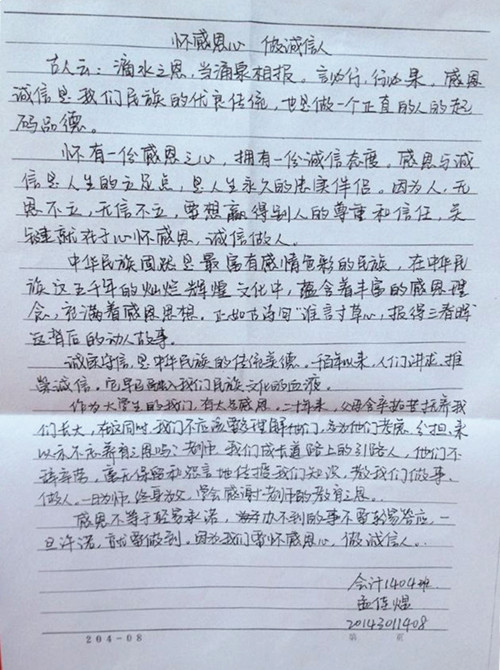 怀感恩心 做诚信人
古人云：滴水之恩，当涌泉相报。言必行，行必果。感恩
诚信是我们民族的优良传统，也是做一个正直的人的起
码品德。
怀有一份感恩之心，拥有一份诚信态度。感恩与诚
信是人生的立足点，是人生永久的忠实伴侣。因为人，无
恩不立，无信不立，要想赢得别人的尊重和信任，关
键就在于心怀感恩，诚信做人。
中华民族因是最富有感情色彩的民族，在中华民
族这五千年的灿烂辉煌文化中，蕴含着丰富的感恩理
念，充满着感恩思想。正如古诗句"谁言寸草心，报得三春晖
这背后的动人故事。
诚实守信，是中华民族的传统美德。千百年以来，人们讲求，推
崇诚信，它早已融入我们民族文化的血液。
作为大学生的我们，有太多感恩。二十年来，父母含辛茹苦抚养我
们长大，在这同时，我们不应该要理解他们，多为他们考虑，分担，来
以示不忘养育之恩吗？老师，我们成长道路上的引路人，他们不
辞辛劳，毫无保留和怨言地传授我们知识，教我们做事、
做人，一日为师，终身为父，学会感谢老师的教育之恩。
感恩不等于轻易承诺，办不到的事不要轻易答应，一
旦许诺，就要做到。因为我们要怀感恩心，做诚信人。
会计1404班
20143011408
204-08 第 页